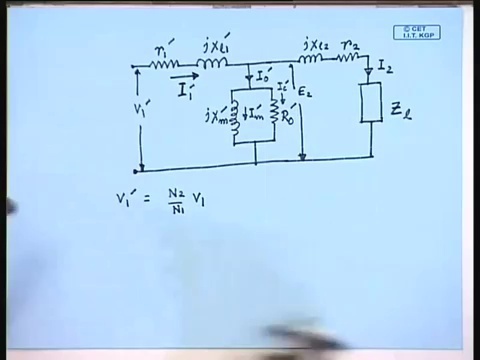 © CET
I.I.T. KGP
r₁′ jxₗ₁′ jxₗ₂ r₂
I₁′ I₀′ I₂
V₁′ jXₘ′ Iₘ′ I_c′ R₀′ E₂ Zₗ
V₁′ = N₂/N₁ V₁